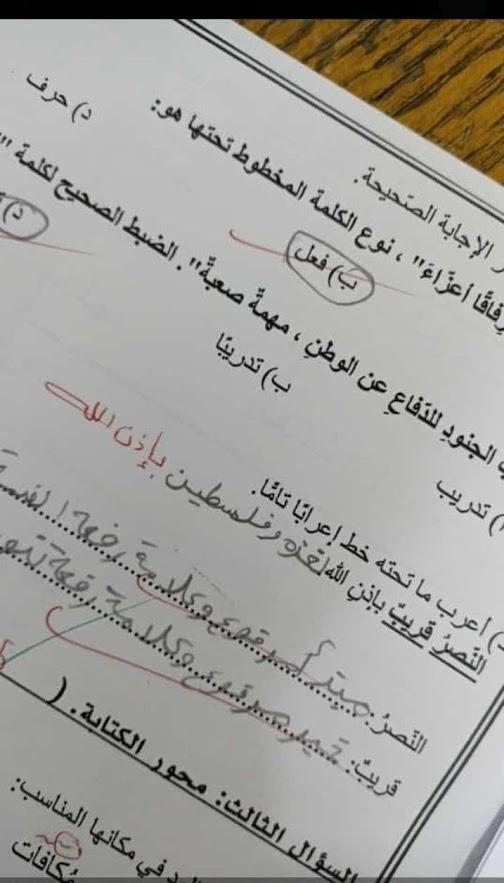 الإجابة الصحيحة.
رفاقًا أعزّاءَ" ، نوع الكلمة المخطوط تحتها هو:
ب) فعل
د) حرف
الجنودِ للدّفاعِ عن الوطنِ ، مهمةٌ صعبةٌ" . الضبط الصحيح لكلمة "
أ) تدريب
ب) تدريبًا
أعرب ما تحته خط إعرابًا تامًا.
النّصرُ قريبٌ بإذنِ الله لغزة وفلسطين بإذن الله
النّصرُ: مبتدأ مرفوع وعلامة رفعه الضمة
قريبٌ: خبر مرفوع وعلامة رفعه تنوين
السؤال الثالث: محور الكتابة. (
في مكانها المناسب:
مكافآت